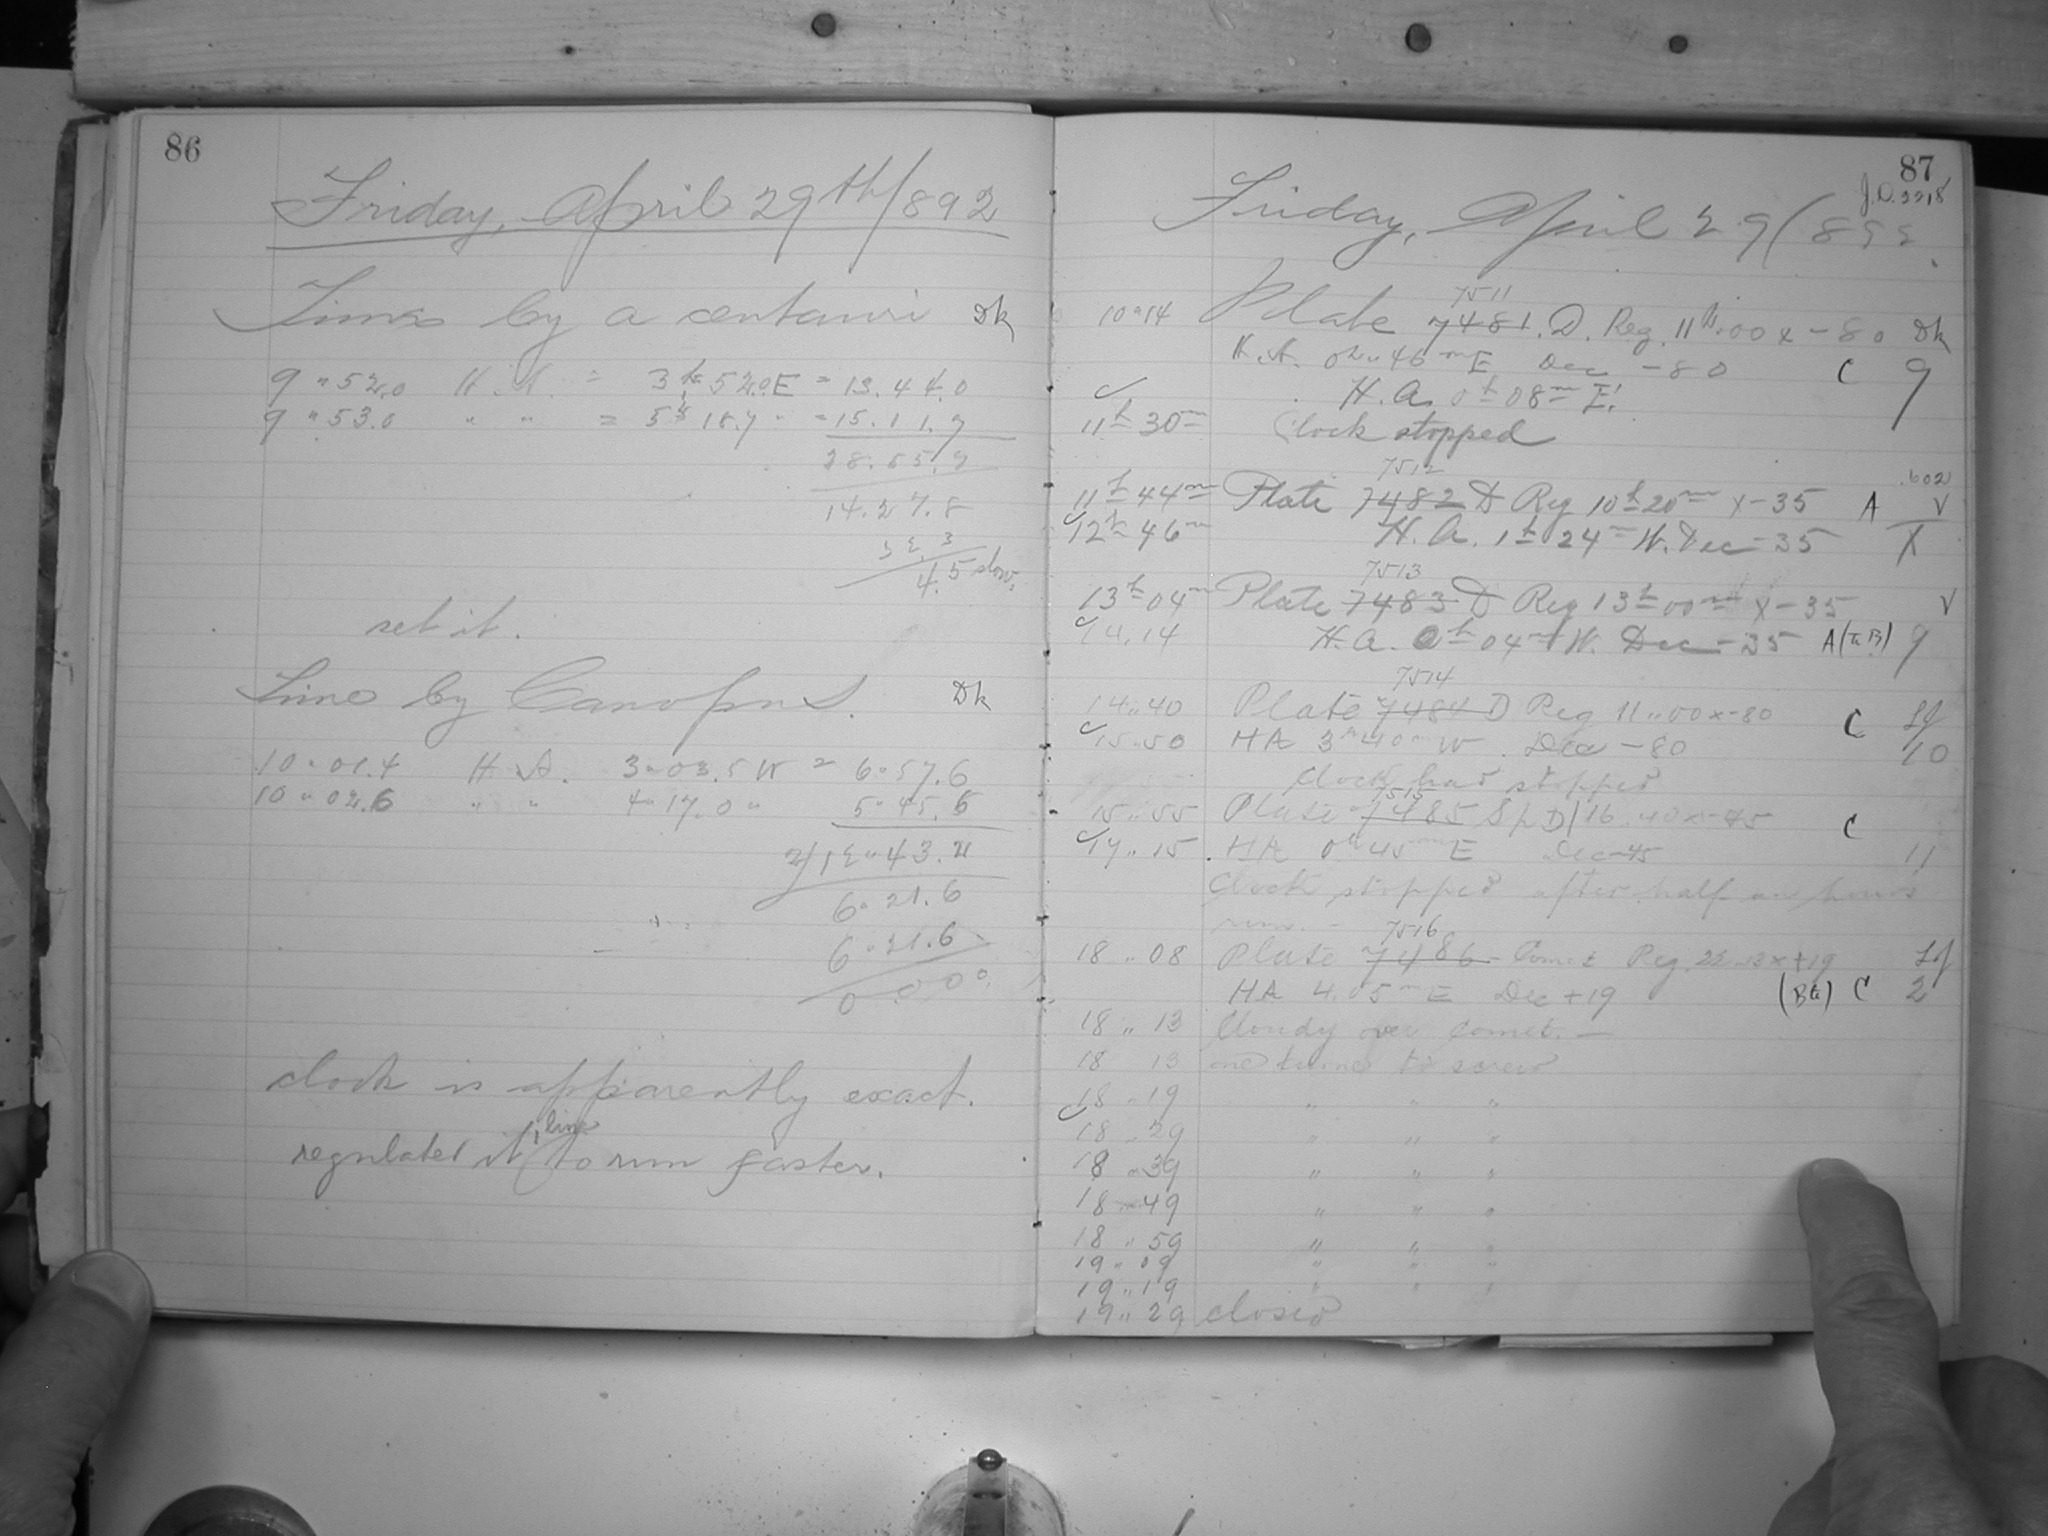 86
Friday, April 29th/892
Time by a centauri Dk
9 " 52.0 H. A. = 3h 52.0 E = 13.44.0
9 " 53.0 " " = 5h 18.7 " = 15.11.7
28.55.7
14.27.8
32.3
4.5 slow.
set it.
Time by Canopus. Dk
10 " 01.4 H. A. 3 " 03.5 W = 6 " 57.6
10 " 02.6 " " 4 " 17.0 " 5 " 45.6
6 " 21.6
6 " 21.6
0 0 0 0
clock is apparently exact.
1 line
regulated it to run faster.
87
J.D. 2218
Friday, April 29/892
7511
10 " 14 Plate 7481. D. Reg. 11h..00 x -80 Dk
H. A. 0h.. 46m E Dec -80 C 9
H. A. 0h 08m E!
11h 30m Clock stopped
7512 .602
11h 44m Plate 7482 D Reg 10h 20m x-35 A V
12h 46m H. A. 1h 24m W. Dec -35 X
7513
13h 04m Plate 7483 D Reg 13h 00m x-35 V
14.14 H. A. 0h 04m W. Dec -35 9
7514
14..40 Plate 7484 D Reg 11..00 x-80 C
15.50 HA 3h 40m W. Dec -80 10
Clock had stopped
7515
15..55 Plate 7485 Sp D 16 40 x -45 C
17..15 HA 0h 45m E Dec -45 11
Clock stopped after half an hours
run. - 7516
18 " 08 Plate 7486 Comet Reg. x +19
HA 4.05m E Dec +19 C 2
18 " 13 Cloudy over comet. -
18 13 one turn to screw
18 " 19 " " "
18 " 29 " " "
18 " 39 " " "
18 " 49 " " "
18 " 59 " " "
19 " 09 " " "
19 " 19 " " "
19 " 29 closed